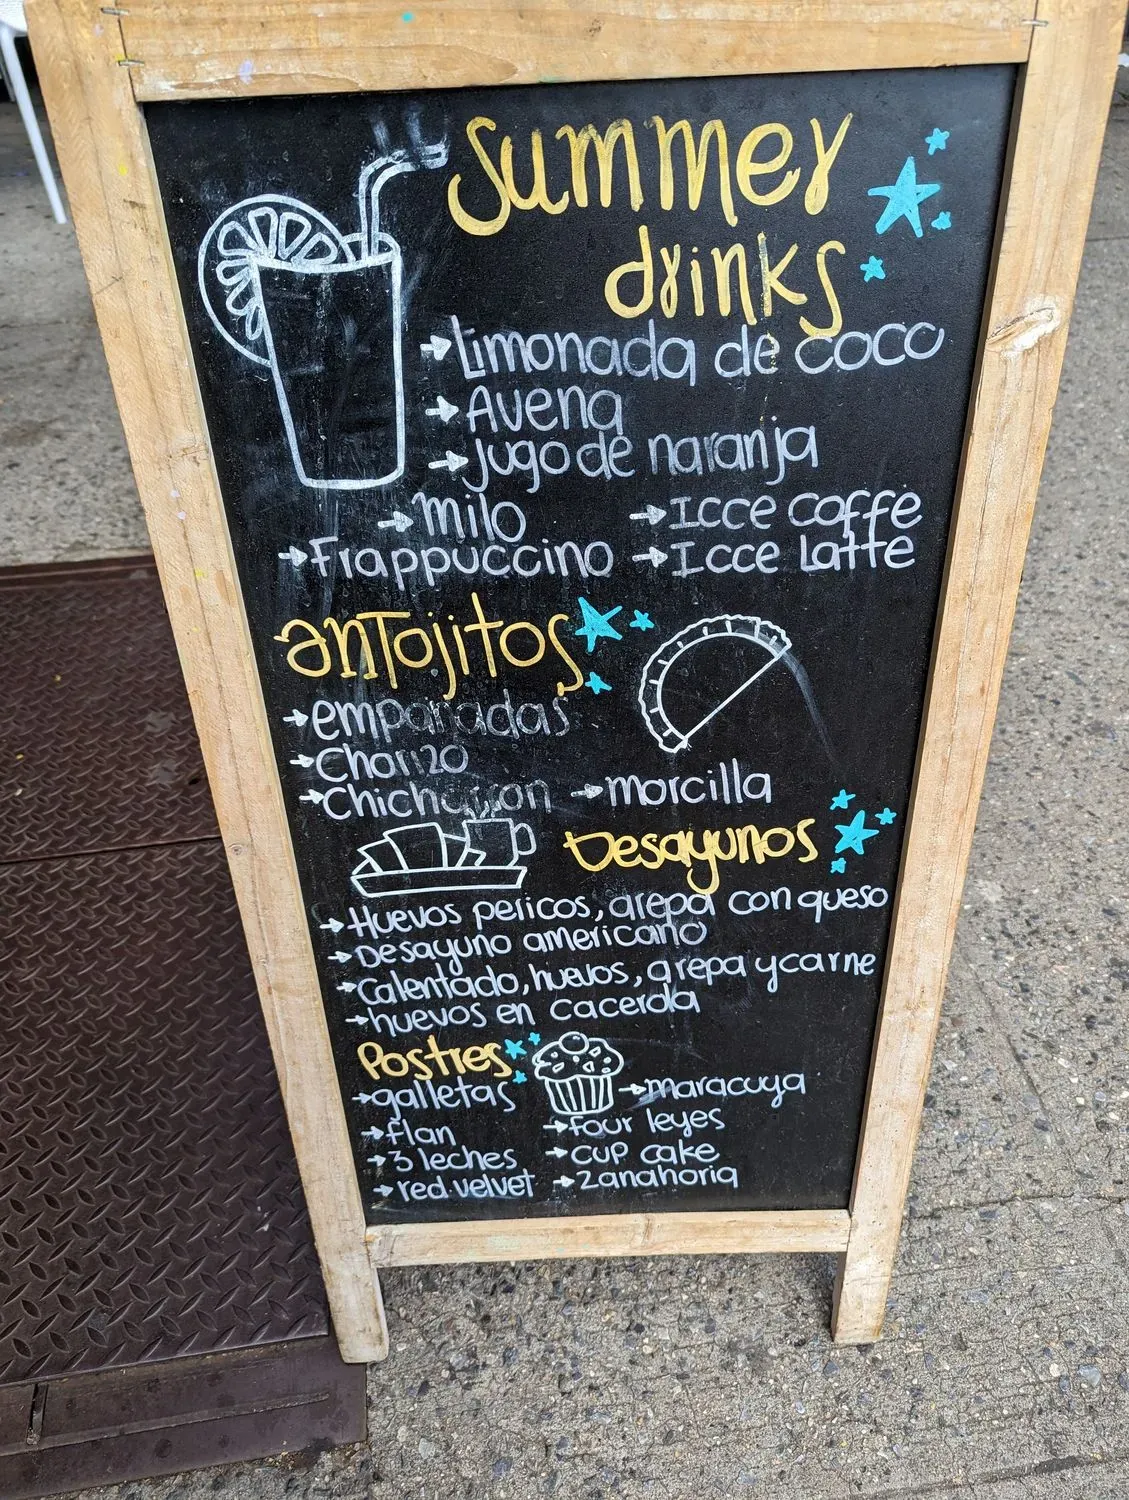 Summer
drinks
→Limonada de coco
→Avena
→Jugo de naranja
→Milo →Icce Caffe
→Frappuccino →Icce Latte
antojitos
→empanadas
→Chorizo
→Chicharron →morcilla
Desayunos
→Huevos pericos, arepa con queso
→Desayuno americano
→Calentado, huevos, arepa y carne
→huevos en cacerola
Postres
→galletas →maracuya
→flan →four leyes
→3 leches →cup cake
→red velvet →zanahoria